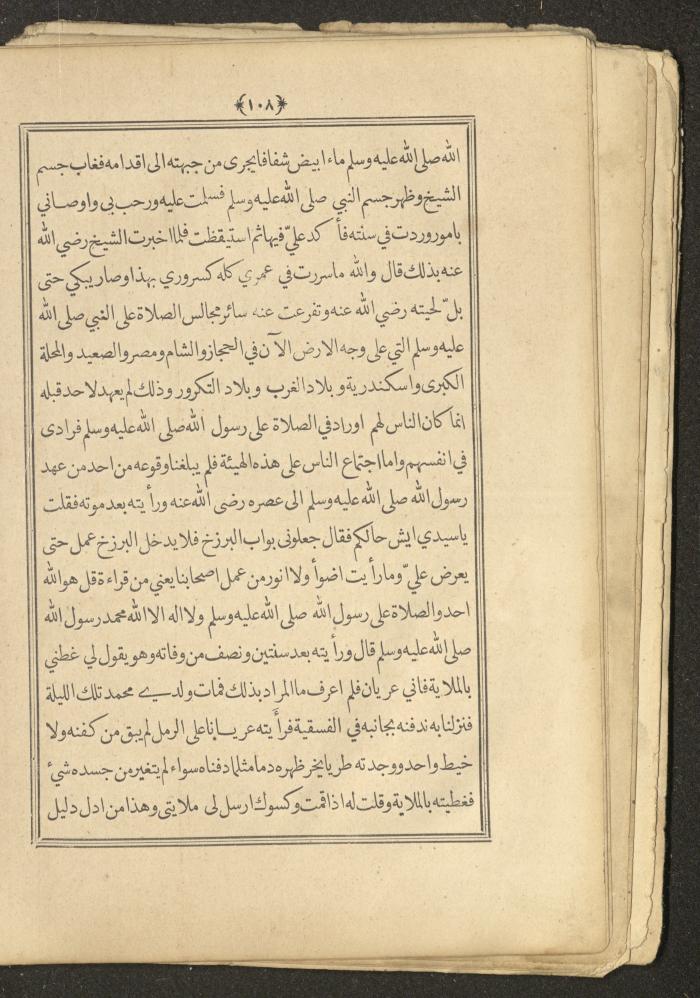 ﴿١٠٨﴾
الله صلى الله عليه وسلم ماء ابيض شفافا يجرى من جبهته الى اقدامه فغاب جسم
الشيخ وظهر جسم النبي صلى الله عليه وسلم فسلمت عليه ورحب بى واوصانى
بامور وردت في سنته فأكد عليّ فيها ثم استيقظت فلما اخبرت الشيخ رضي الله
عنه بذلك قال والله ماسررت في عمري كله كسروري بهذا وصار يبكي حتى
بلّ لحيته رضي الله عنه وتفرعت عنه سائر مجالس الصلاة على النبي صلى الله
عليه وسلم التي على وجه الارض الآن في الحجاز والشام ومصر والصعيد والمحلة
الكبرى واسكندرية وبلاد الغرب وبلاد التكرور وذلك لم يعهد لاحد قبله
انما كان الناس لهم اوراد في الصلاة على رسول الله صلى الله عليه وسلم فرادى
في انفسهم واما اجتماع الناس على هذه الهيئة فلم يبلغنا وقوعه من احد من عهد
رسول الله صلى الله عليه وسلم الى عصره رضى الله عنه ورأيته بعد موته فقلت
ياسيدي ايش حالكم فقال جعلونى بواب البرزخ فلا يدخل البرزخ عمل حتى
يعرض عليّ وما رأيت اضوأ ولا انور من عمل اصحابنا يعني من قراءة قل هو الله
احد والصلاة على رسول الله صلى الله عليه وسلم ولا اله الا الله محمد رسول الله
صلى الله عليه وسلم قال ورأيته بعد سنتين ونصف من وفاته وهو يقول لي غطني
بالملاية فاني عريان فلم اعرف ما المراد بذلك فمات ولدي محمد تلك الليلة
فنزلنا به ندفنه بجانبه في الفسقية فرأيته عريانا على الرمل لم يبق من كفنه ولا
خيط واحد ووجدته طريا يخر ظهره دما مثلما دفناه سواء لم يتغير من جسده شيء
فغطيته بالملاية وقلت له اذا قمت وكسوك ارسل لى ملايتى وهذا من ادل دليل